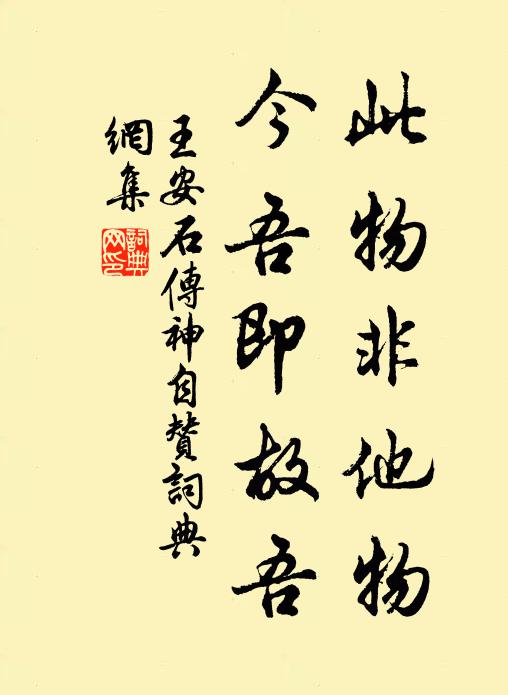 此物非他物
今吾即故吾
王安石傳神自贊詞典
網集
詞典
网印